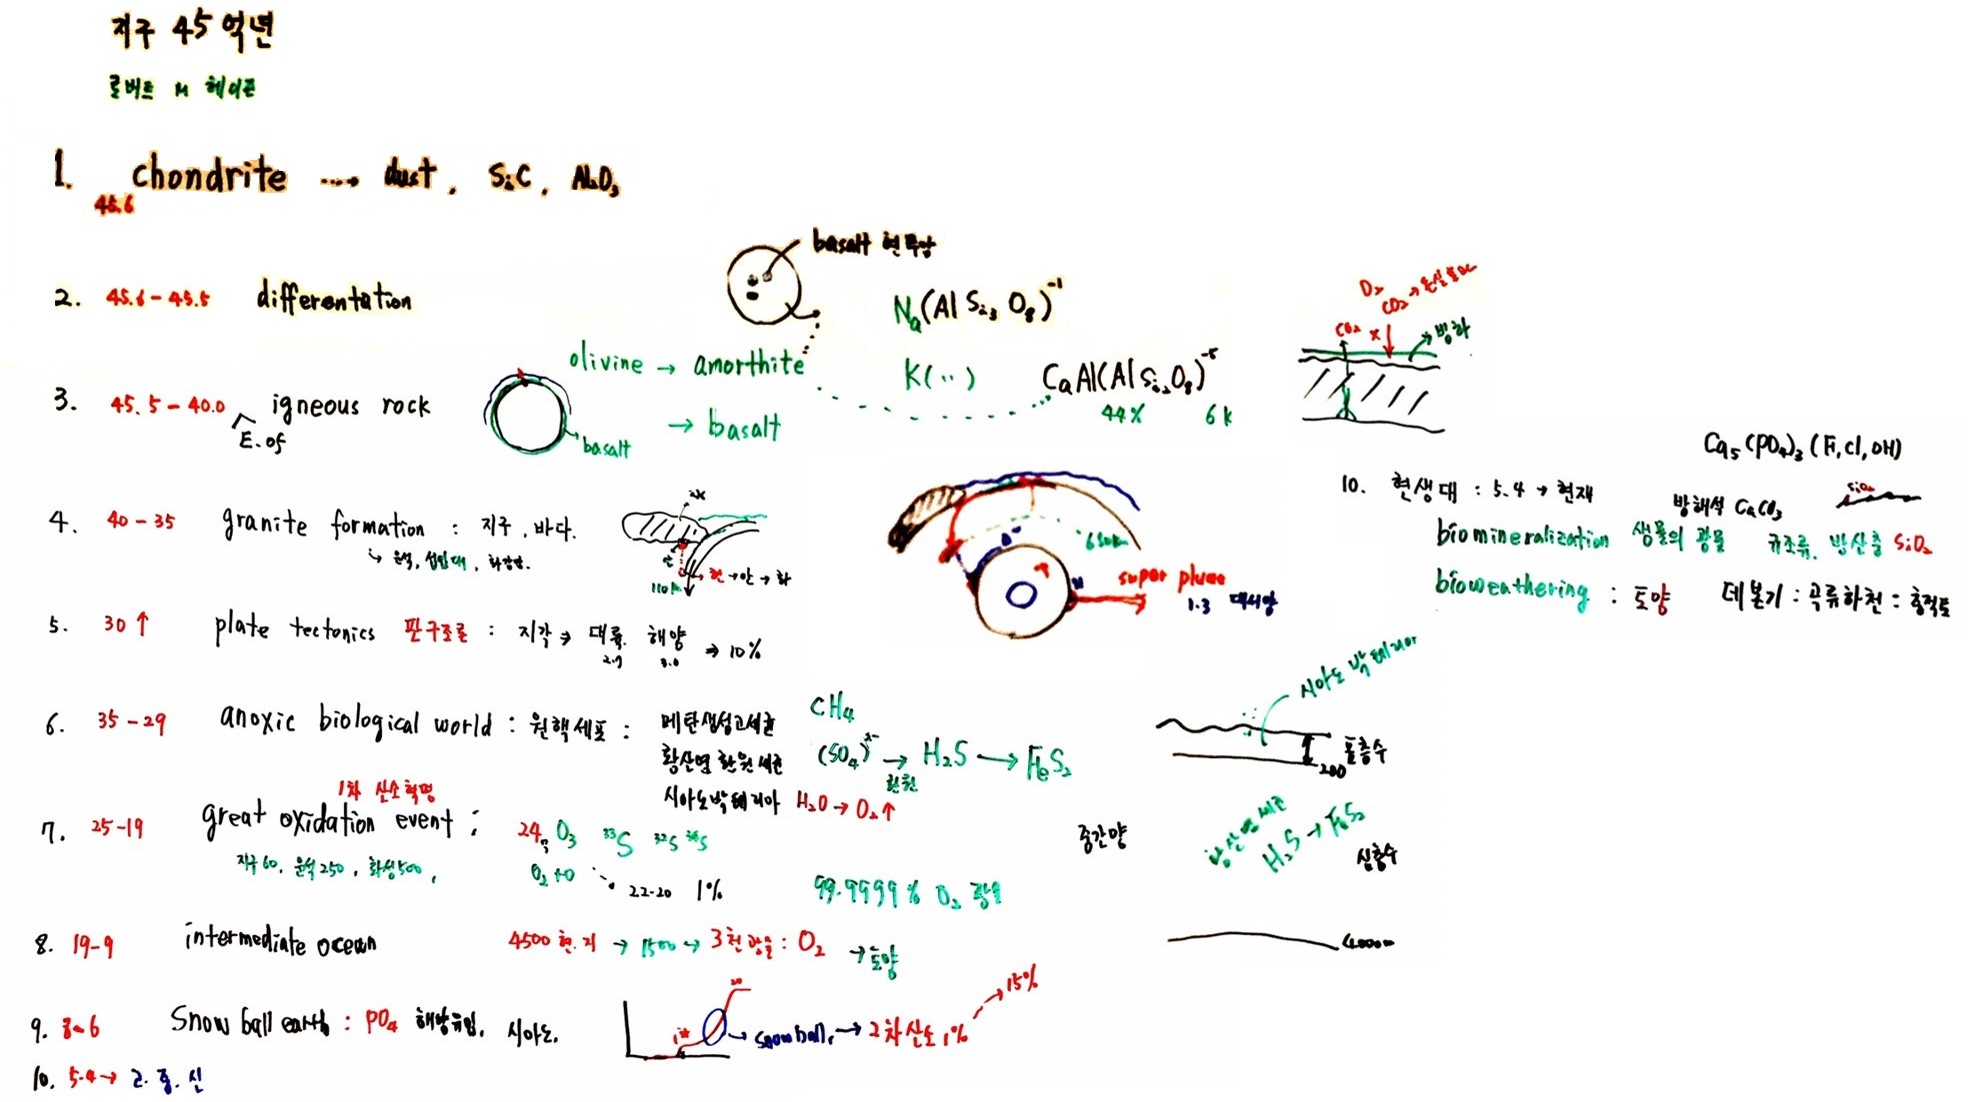 지구 45억년
로버트 M 헤이즌
1. chondrite ····→ dust, SiC, Al2O3
45.6
basalt 현무암
2. 45.6 - 45.5 differentation
Na(AlSi3O8)⁻¹
O2
CO2 → 온실효과
CO2 x
빙하
olivine → anorthite
K(··)
CaAl(AlSi2O8)⁻⁵
44% 6k
3. 45.5 - 40.0 igneous rock
E. of
basalt
→ basalt
Ca5(PO4)3(F, Cl, OH)
10. 현생대 : 5.4 → 현재
방해석 CaCO3
SiO2
biomineralization 생물의 광물 규조류, 방산충 SiO2
bioweathering : 토양 데본기 : 곡류하천 : 충적토
4. 40 - 35 granite formation : 지구, 바다.
↳ 운석, 섭입대, 화강암.
현 → 안 → 화
110km
650km
super plume
1.3 대서양
5. 30↑ plate tectonics 판구조론 : 지각 → 대륙. 해양 → 10%
2.7 3.0
6. 35 - 29 anoxic biological world : 원핵세포 : 메탄생성고세균 CH4
황산염 환원 세균 (SO4)²⁻ → H2S → FeS2
환원
시아노박테리아 H2O → O2↑
시아노박테리아
200 표층수
1차 산소혁명
7. 25-19 great oxidation event : 24, O3 ³³S ³²S ³⁴S
지구 60, 운석 250, 화성 500,
O2+O
22-20 1%
99.9999% O2 광물
중간양
황산염세균
H2S → FeS2
심층수
4000m
8. 19-9 intermediate ocean 4500 현.지 → 1500 → 3천광물 : O2 → 토양
9. 8~6 Snow ball earth : PO4 해양유입, 시아노.
20
1%
→ snowball, → 2차산소 1%
→ 15%
10. 5.4→ 고. 중. 신